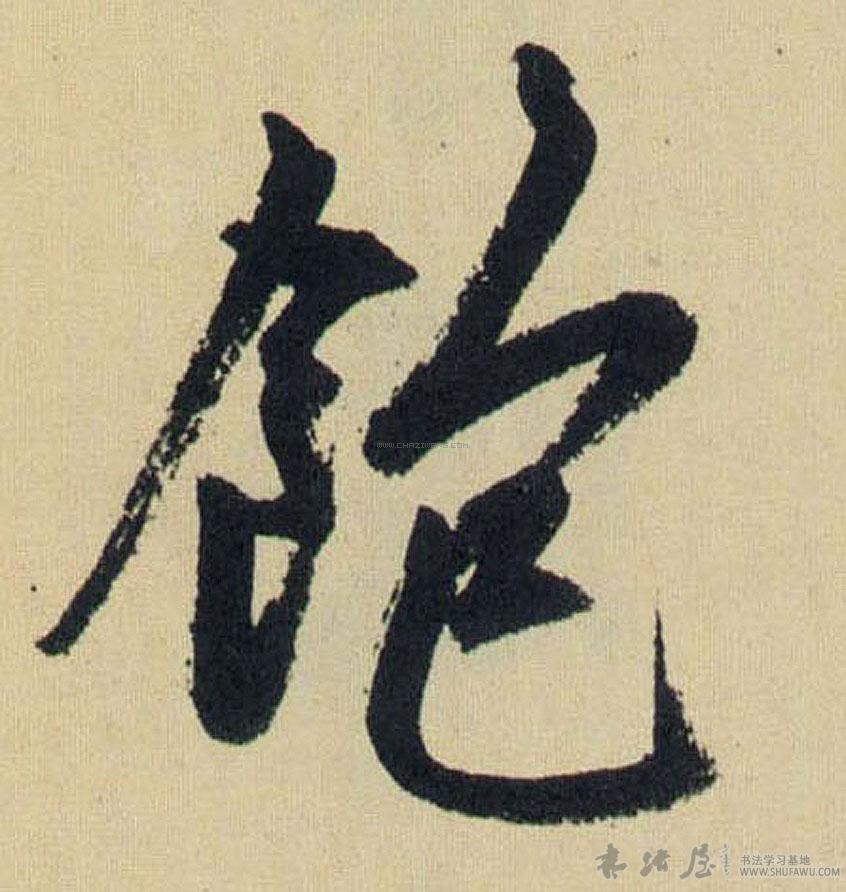 飽
WWW.CHAZIWANG.COM
书法屋
书法学习基地
WWW.SHUFAWU.COM